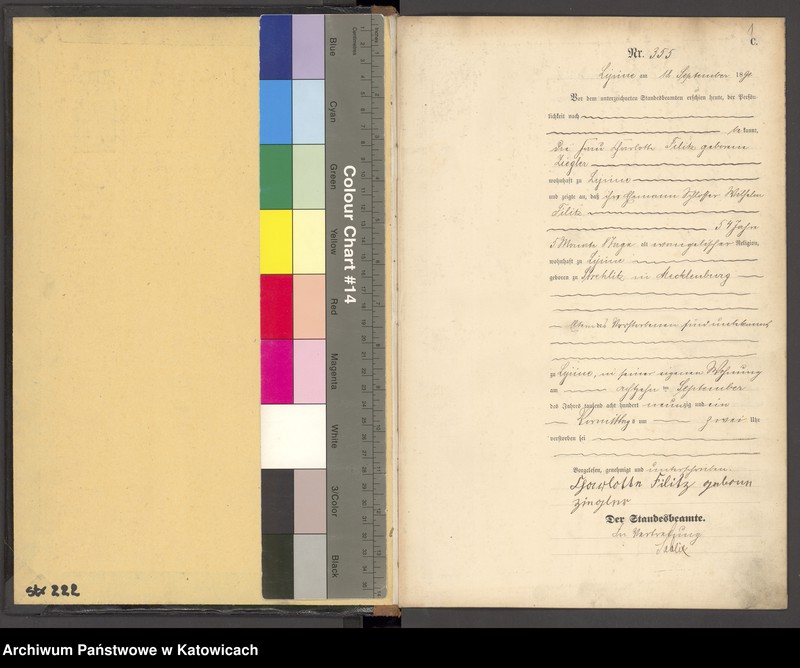 str 222
Colour Chart #14
Blue
Cyan
Green
Yellow
Red
Magenta
White
3/Color
Black
Centimetres
Inches
1
C.
Nr. 355
Lipine am September 189
Vor dem unterzeichneten Standesbeamten erschien heute, der Persön-
lichkeit nach
be kannt,
die Frau Charlotte Filitz geborene
Ziegler
wohnhaft zu Lipine
und zeigte an, daß ihr Ehemann Schlosser Wilhelm
Filitz
54 Jahre
5 Monate Tage alt evangelischer Religion,
wohnhaft zu Lipine
geboren zu Strehlitz in Mecklenburg
Verstorbenen sind unbekannt
zu Lipine, in seiner eigenen Wohnung
am September
des Jahres tausend acht hundert neunzig und ein
Vormittags um zwei Uhr
verstorben sei
Vorgelesen, genehmigt und unterschrieben.
Charlotte Filitz geborene
Ziegler
Der Standesbeamte.
In Vertretung
Archiwum Państwowe w Katowicach